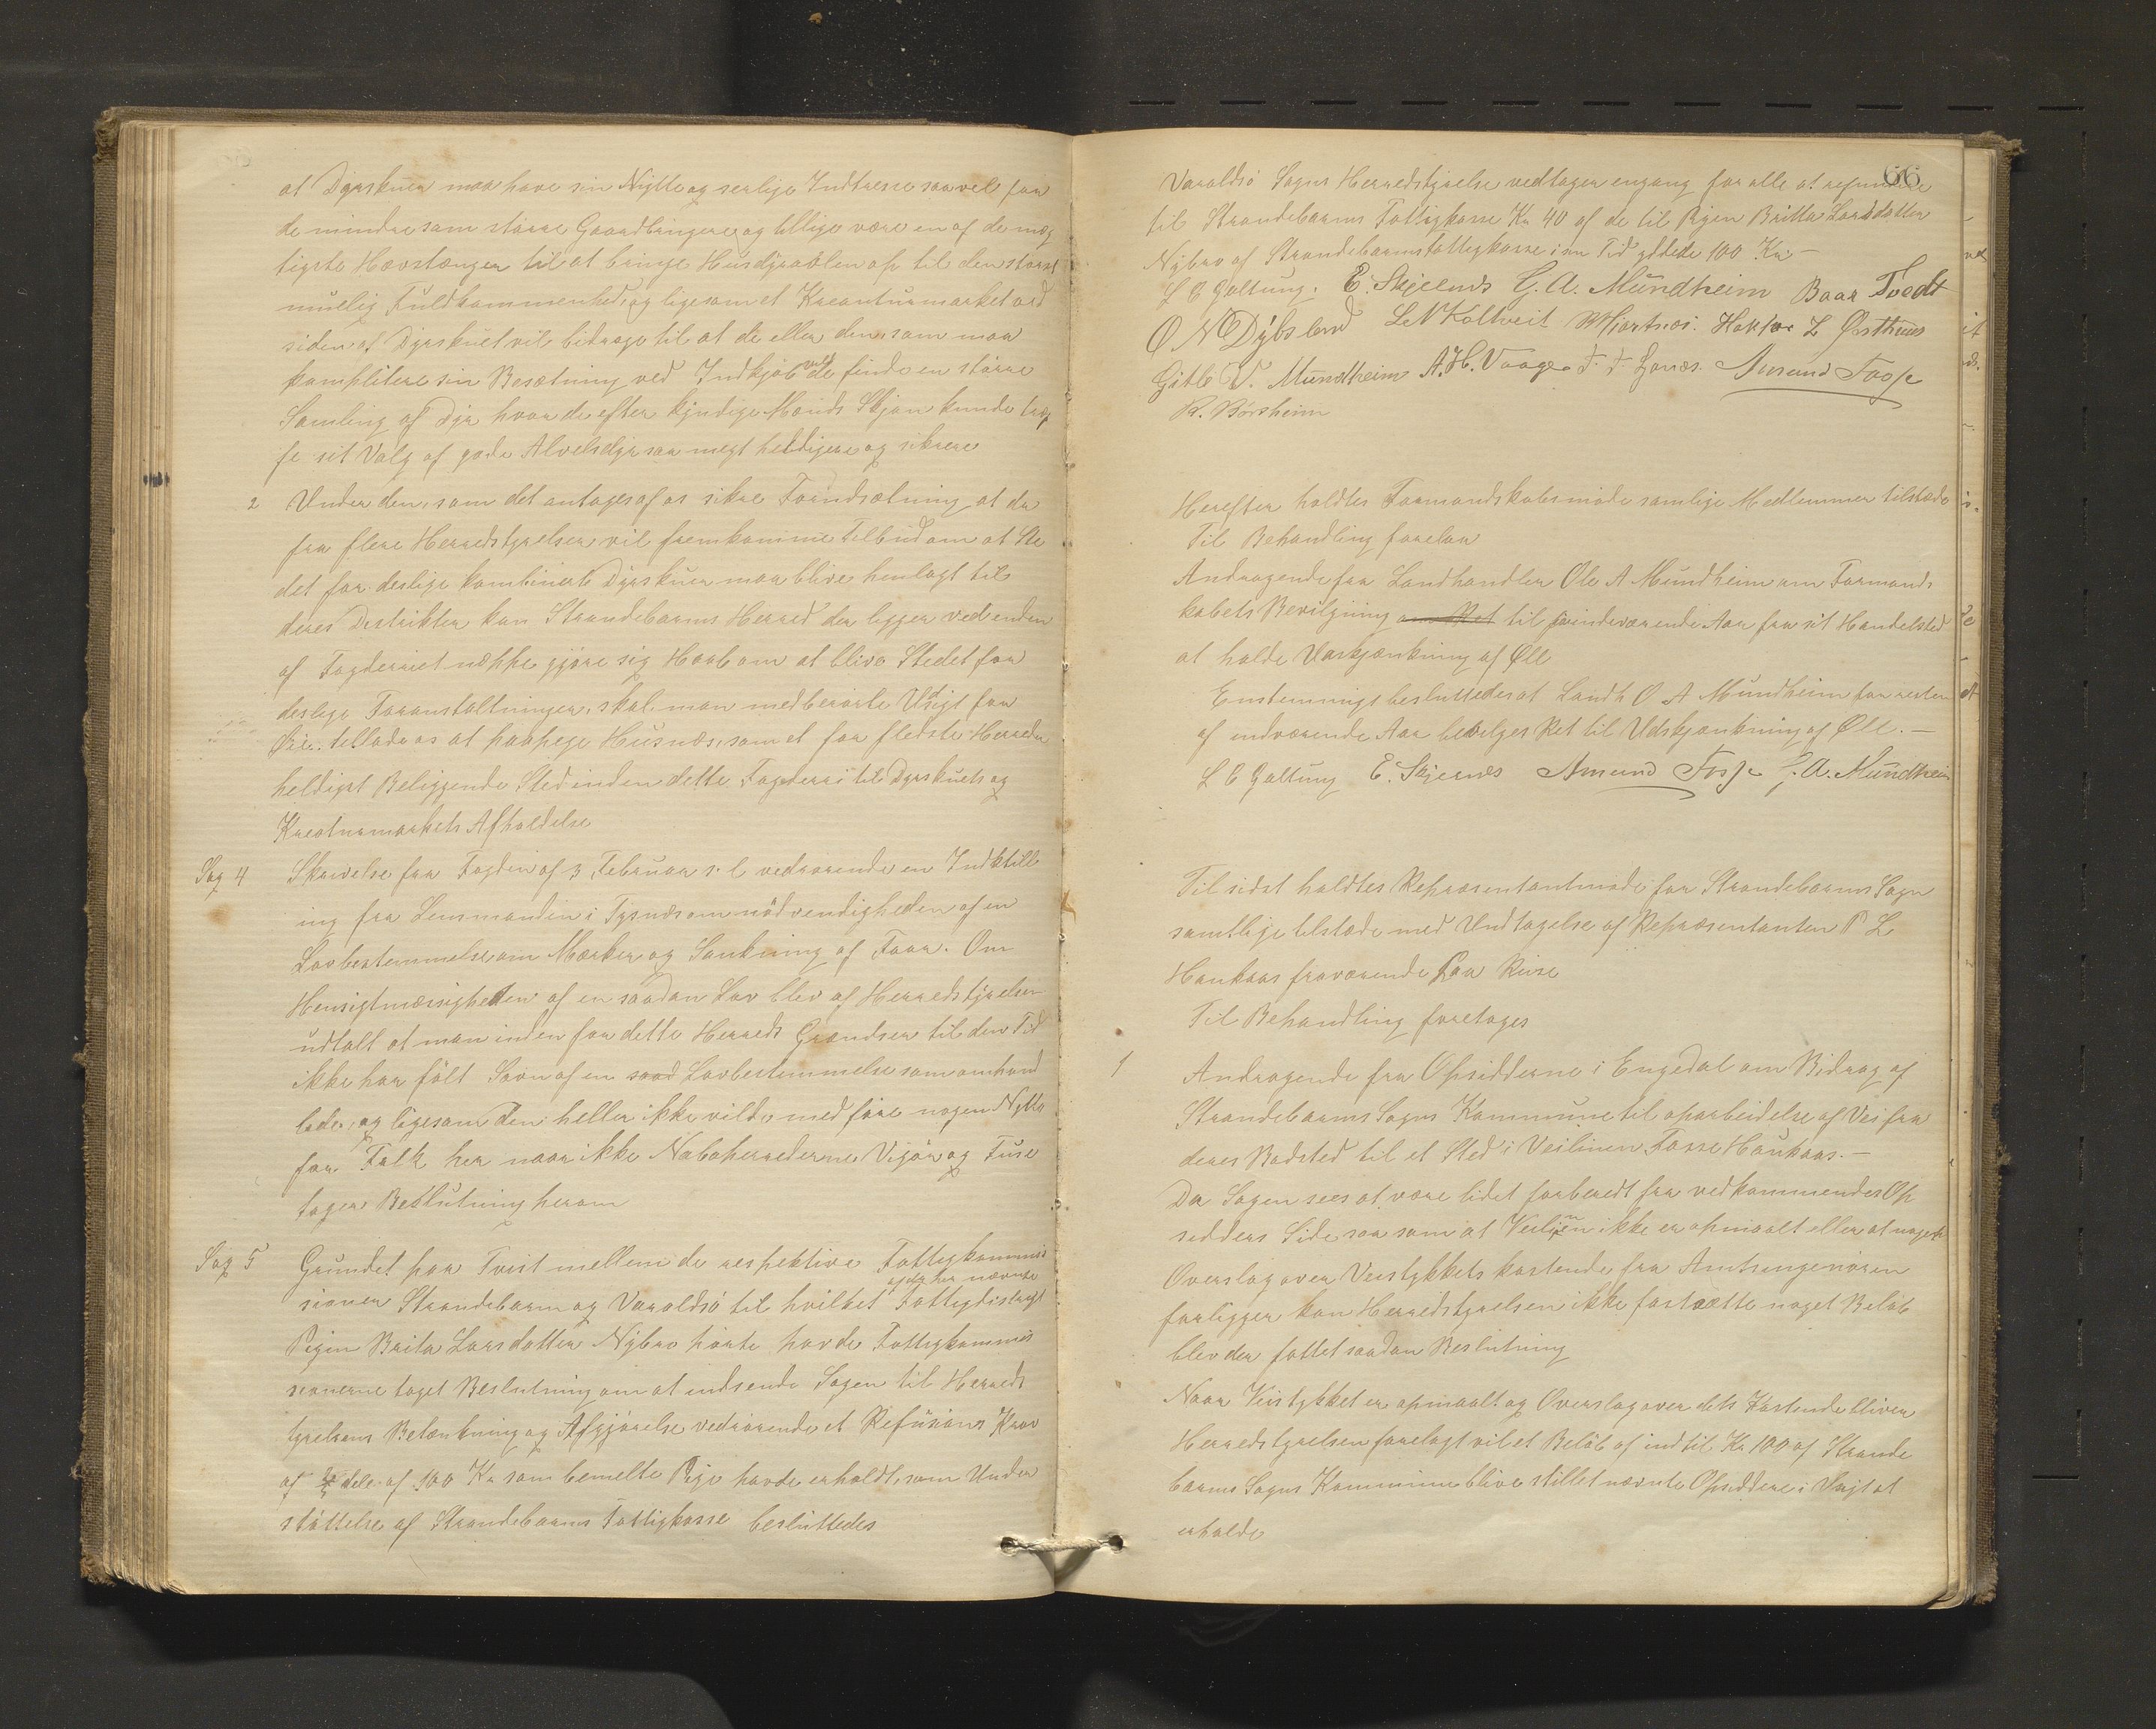 at Dyrskuer maa have sin Nytte og serlige Indtresse saavel for
de mindre som større Gaardbrugere og tillige være en af de mæg
tigste Hævstænger til at bringe Husdyravlen op til den størst
muelig Fuldkommenhed, og ligesom et Kreaturmarket ved
siden af Dyrskuet vil bidrage til at de eller den, som maa
komplitere sin Besætning ved Indkjøb vilde finde en større
Samling af Dyr hvor de efter kyndige Mænds Skjøn kunde træf
fe sit Valg af gode Alvelsdyr saa megt heldigere og sikrere
2 Under den, som det antages af os sikre Forudsætning at der
fra flere Herredstyrelser vil fremkomme Tilbud om at Ste
det for deslige kombinerte Dyrskuer maa blive henlagt til
deres Destrikter kan Strandebarms Herred der ligger ved enden
af Fogderiet neppe gjøre sig Haab om at blive Stedet for
deslige Foranstaltninger, skal man med berørte Udsigt for
Øie tillade os at paapege Husnæs, som et for fledste Herreder
heldigst Beliggende Sted inden dette Fogderi til Dyrskuets og
Kreaturmarkets Afholdelse
Sag 4 Skrivelse fra Fogden af 3 Februar s. l vedrørende en Indstill
ing fra Lensmanden i Tysnæs om nødvendigheden af en
Lovbestemmelse om Mærker og Sankning af Faar. Om
Hensigtmæssigheden af en saadan Lov blev af Herredstyrelsen
udtalt at man inden for dette Herreds Grændser til den Tid
ikke har følt Savn af en saad Lovbestemmelse som omhand
lede, og ligesom den heller ikke vilde medføre nogen Nytte
for Folk her naar ikke Naboherrederne Vigør og Fuse
tager Beslutning herom
Sag 5 Grundet paa Tvist mellem de respektive Fattigkommis
sioner Strandebarm og Varaldsø til hvilket af de her nævnte Fattigdistrigt
Pigen Brita Larsdatter Nybro hørte havde Fattigkommis
sionerne taget Beslutning om at indsende Sagen til Herreds
tyrelsens Betænkning og Afgjørelse vedrørende et Refusions Krav
af dele af 100 Kr som bemelte Pige havde erholdt, som Under
støttelse af Strandebarms Fattigkasse besluttedes
66
Varaldsø Sogns Herredstyrelse vedtager engang for alle at refundere
til Strandebarms Fattigkasse Kr 40 af de til Pigen Britta Larsdatter
Nybro af Strandebarms fattigkasse i sin Tid ydtede 100 Kr –
L C Galtung. E. Skjelnæs G. A. Mundheim Baar Tvedt
O N Dybsland L N Koltveit Hjartnæs. Haktor L Østhuus
Gitle V. Mundheim A. H. Vaage. F. F Lonæs. Amund Fosse
R. Børsheim
Herefter holdtes Formandskabsmøde samlige Medlemmer tilstæde
Til Behandling forelaa
Andragende fra Landhandler Ole A Mundheim om Formands
kabets Bevilgning om Ret til for indeværende Aar fra sit Handelsted
at holde Udskjænkning af Øll
Enstemmigt besluttedes at Landh O A Mundheim for resten
af indværende Aar bevilges Ret til Udskjænkning af Øll. –
L C Galtung E. Skjelnæs Amund Fosse G. A. Mundheim
Til sidst holdtes Repræsentantmøde for Strandebarms Sogn
samtlige tilstæde med Undtagelse af Repræsentanten P L
Haukaas fraværende paa Reise
Til Behandling foretages
1 Andragende fra Opsidderne i Engedal om Bidrag af
Strandebarms Sogns Kommune til oparbeidelse af Vei fra
deres Bosted til et Sted i Veilinen Fosse Haukaas. –
Da Sagen sees at være lidet forberedt fra vedkommendes Op
sidders Side saa som at Veilinien ikke er opmaalt eller at noget
Overslag over Veistykkets kostende fra Amtsingeniøren
forligger kan Herredstyrelsen ikke fastsætte noget Beløb
blev der fattet saadan Beslutning
Naar Veistykket er opmaalt og Overslag over dets Kostende bliver
Herredstyrelsen forelagt vil et Beløb af indtil Kr 100 af Strande
barms Sogns Kommune blive stillet nævnte Opsiddere i Udsigt at
erholde